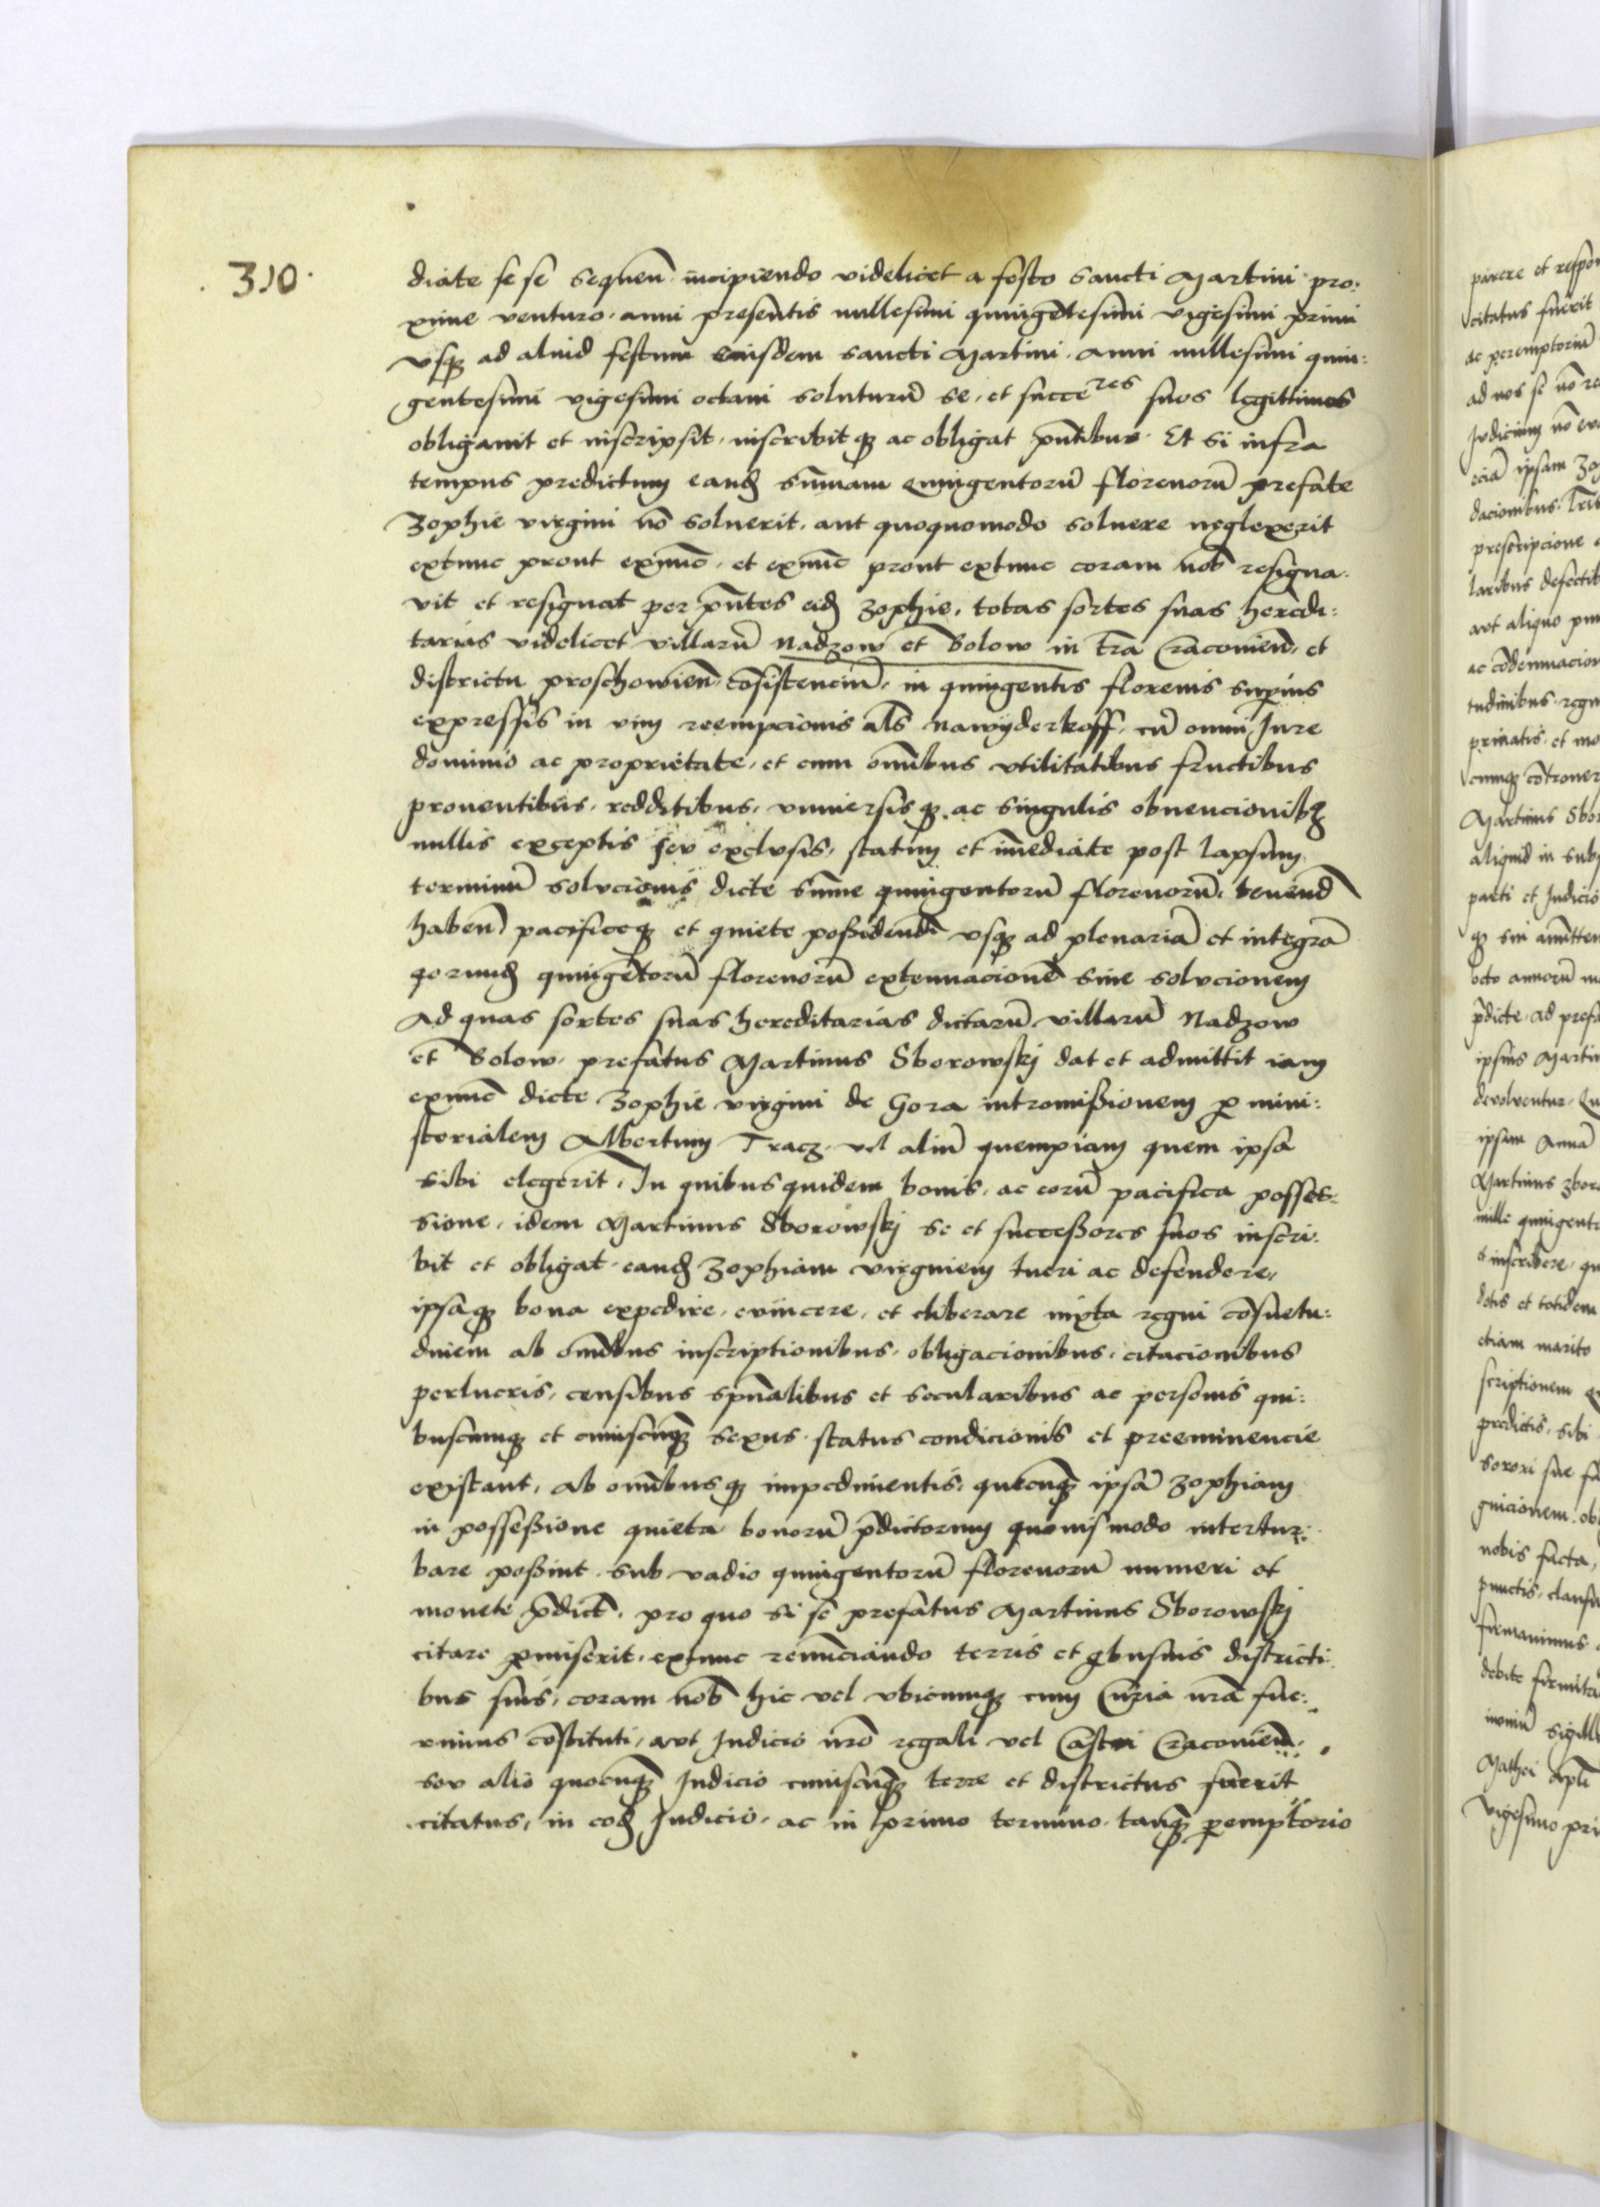 310.
diate se se sequen̄ incipiendo videlicet a festo sancti Martini pro:
xime venturo anni presentis millesimi quingētesimi vigesimi primi
vsq̨ ad aliud festum eiusdem sancti Martini anni millesimi quin:
gentesimi vigesimi octaui soluturū se et succeres suos legittimos
obligauit et inscripsit, inscribitq̨ ac obligat pn̄tibus. Et si infra
tempus predictum eand̨ sum̄am Quingentorū florenorū prefate
Zophie virgini nō soluerit, aut quoquomodo soluere neglexerit
extunc prout exnūc, et exnūc prout extunc coram nob̄ resigna
vit et resignat per pn̄tes eid̨ Zophie, totas sortes suas heredi:
tarias videlicet villarū Nadzow et Bolow in tr̄a Cracouien̄, et
districtu proschowien̄ cōsistenciū, in quingentis florenis supius
expressis in vim reempcionis al̄s nawyderkoff, cū omni Jure
dominio ac proprietate, et cum om̄ibus vtilitatibus fructibus
prouentibus, redditibus, vniuersisq̨ ac singulis obuencionibȝ
nullis exceptis seu exclusis, statim et im̄ediate post lapsum
terminū solucionis dicte sum̄e quingentorū florenorū, tenend̄
haben̄ pacificeq̨ et quiete possidend̄ vsq̨ ad plenariā et integrā
eorund̨ quingētorū florenorū extenuacionē siue solucionem
Ad quas sortes suas hereditarias dictarū villarū Nadzow
et Bolow, prefatus Martinus Sborowskj dat et admittit iam
exnūc dicte Zophie virgini de Gora intromissionem p̱ mini:
sterialem Albertum Tracz vel aliū quempiam quem ipsa
sibi elegerit, In quibus quidem bonis, ac eorū pacifica posses:
sione, idem Martinus Sborowskj se et successores suos inscri:
bit et obligat eand̨ Zophiam virginem tueri ac defendere,
ipsaq̨ bona expedire, euincere, et eliberare iuxta regni cōsuetu:
dinem ab om̄ibus inscriptionibus, obligacionibus, citacionibus
perlucris, censibus spūalibus et secularibus ac personis qui:
buscumq̨ et cuiuscūq̨ sexus status condicionis et preeminencie
existant, ab om̄ibusq̨ impedimentis, quecūq̨ ipsā Zophiam
in possessione quieta bonorū p̄dictorum quouismodo intertur:
bare possint sub vadio quingentorū florenorū numeri et
monete p̄dict̄, pro quo si se prefatus Martinus Sborowskj
citare p̱miserit, exnunc renūciando terris et quibusuis districti
bus suis, coram nob̄ hic vel vbicumq̨ cum Curia nr̄a fue:
rimus cōstituti, aut Judicio nr̄o regali vel Castri Cracouien̄
seu alio quocūq̨ Judicio cuiuscūq̨ terre et districtus fuerit
citatus, in eod̨ Judicio, ac in primo termino tanq̨ p̱emptorio